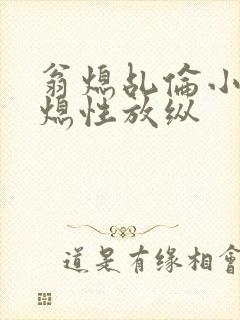 翁熄乱倫小
熄性放纵
道是有缘相會